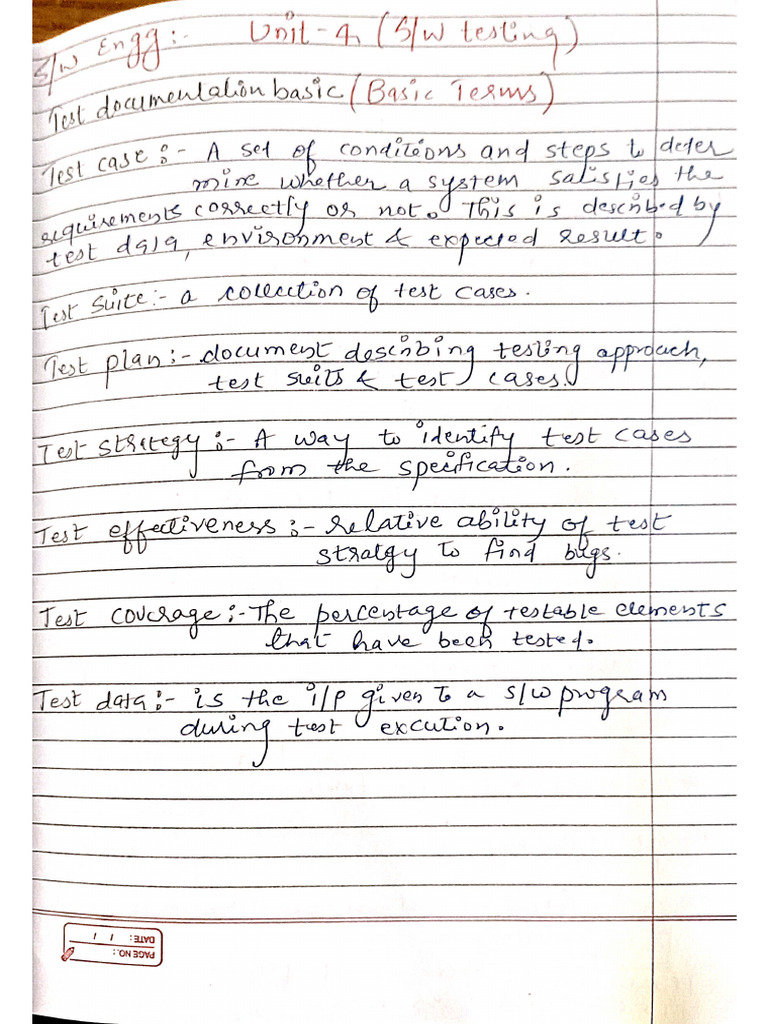 S/W Engg:- Unit-4, (S/W testing)
Test documentation basic (Basic Terms)
Test case:- A set of conditions and steps to deter
mine whether a system satisfies the
requirements correctly or not. This is described by
test data, environment & expected result.
Test Suite:- a collection of test cases.
Test plan:- document describing testing approach,
test suits & test cases.
Test strategy:- A way to identify test cases
from the specification.
Test effectiveness:- relative ability of test
stratgy to find bugs.
Test coverage:- The percentage of testable elements
that have been tested.
Test data:- is the i/p given to a s/w program
during test excution.
PAGE NO.:
DATE: / /